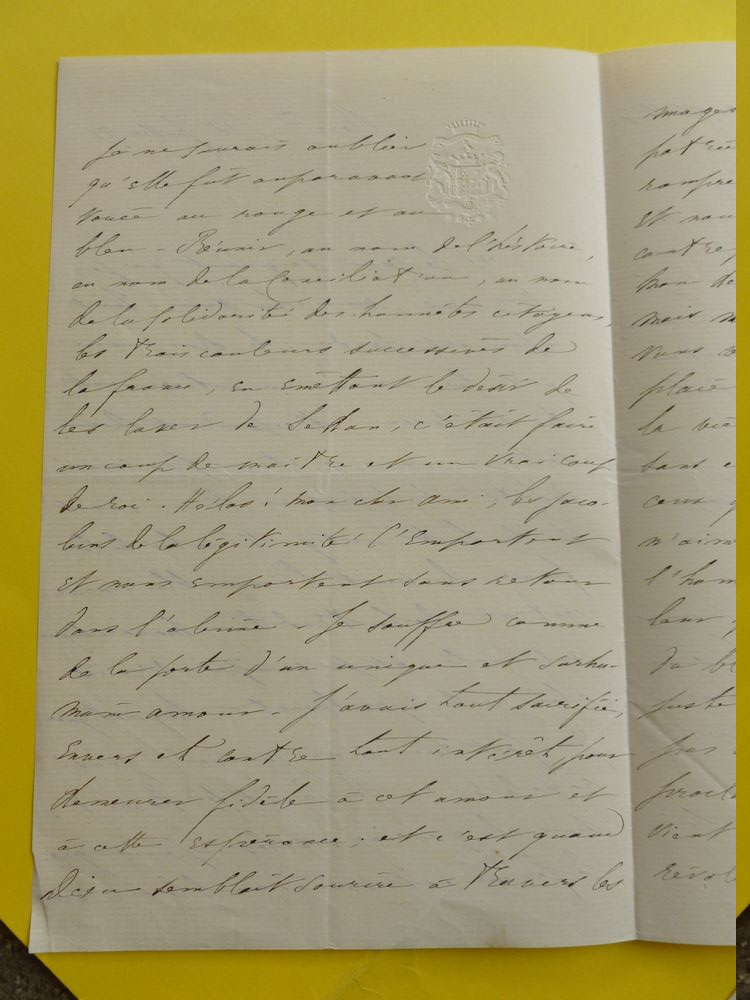 Je ne saurais oublier
qu'elle fût auparavant
vouée au rouge et au
bleu - Réunir, au nom de l'histoire,
au nom de la Conciliation, au nom
de la solidarité des honnêtes citoyens,
les trois couleurs successives de
la france, en émettant le désir de
les laver de Sedan, c'était faire
un coup de maître et un vrai coup
de roi. Hélas! mon cher ami, les jaco-
bins de la légitimité l'emportent
et nous emportent sans retour
dans l'abîme - Je souffre comme
de la perte d'un unique et surhu-
main amour - J'avais tout sacrifié,
envers et contre tout intérêt, pour
demeurer fidèle à cet amour et
à cette espérance; et c'est quand
Dieu semblait sourire à travers les
rompre
Et nous
mais
vous
la
n'aim
l'hom
leur
juste
pas
vient